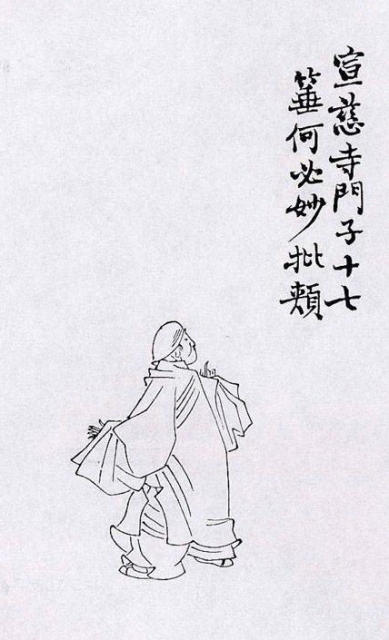 宣慈寺門子十七
箠何必妙批頰